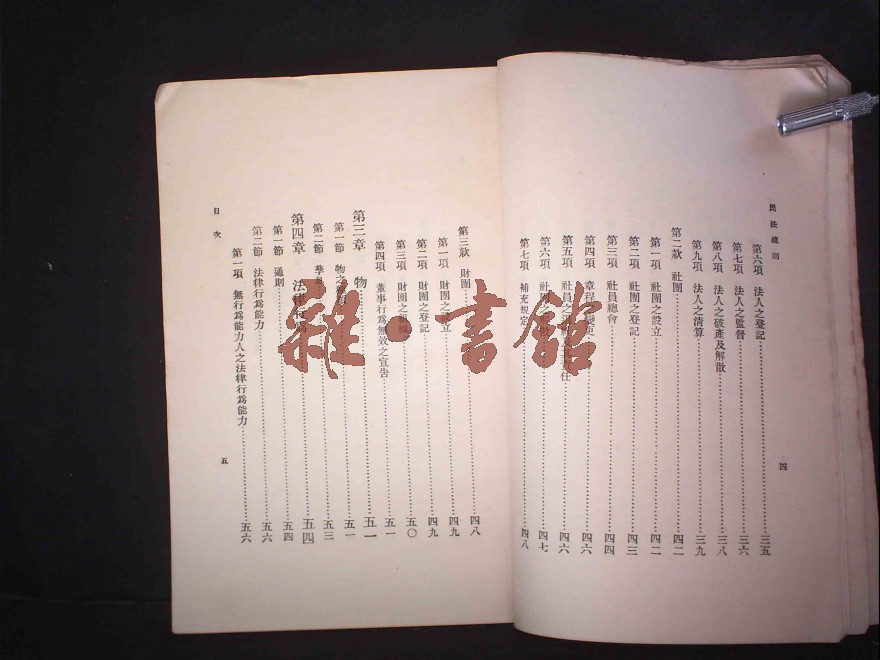 民法總則
第六項 法人之登記 三五
第七項 法人之監督 三六
第八項 法人之破產及解散 三八
第九項 法人之清算 三九
第二款 社團 四二
第一項 社團之設立 四二
第二項 社團之登記 四三
第三項 社員總會 四四
第四項 章程 更 四六
第五項 社員之 任 四六
第六項 社團之 四七
第七項 補充規定 四八
四
第三款 財團 四八
第一項 財團之設立 四九
第二項 財團之登記 四九
第三項 財團之組織 五〇
第四項 董事行爲無效之宣告 五一
第三章 物 五一
第一節 物之 五一
第二節 孳息 五三
第四章 法律行爲 五四
第一節 通則 五四
第二節 法律行爲能力 五六
第一項 無行爲能力人之法律行爲能力 五六
目次
五
雜·書館